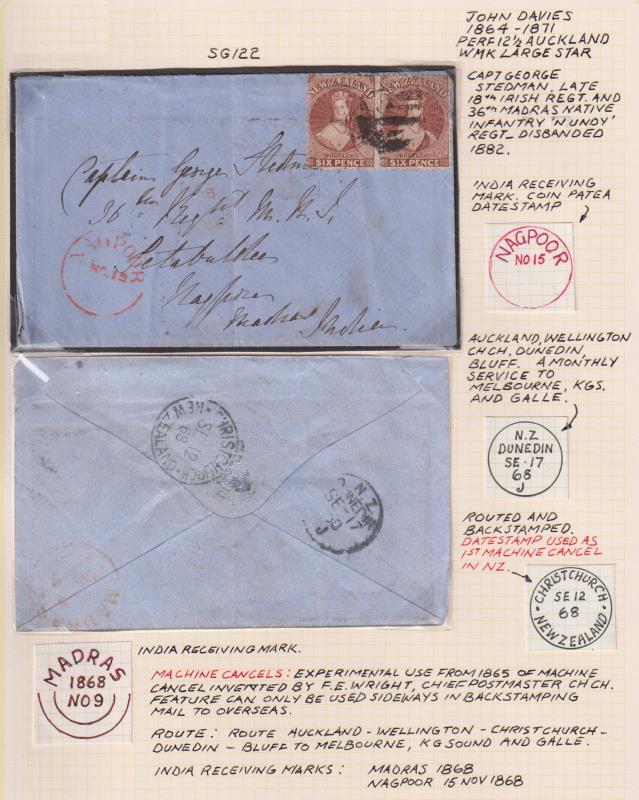 JOHN DAVIES
1864-1871
PERF 12½ AUCKLAND
WMK LARGE STAR
SG122
CAPT GEORGE
STEDMAN, LATE
18TH IRISH REGT. AND
36TH MADRAS NATIVE
INFANTRY 'NUNDY'
REGT_ DISBANDED
1882.
NEW ZEALAND
POSTAGE
SIX PENCE
NEW ZEALAND
POSTAGE
SIX PENCE
Captain George Stedman
36th Reght M. N. I,
Seetabuldee
Nagpore
Madras India
NAGPOOR
NO.15
INDIA RECEIVING
MARK. COIN PATEA
DATESTAMP
NAGPOOR
NO 15
AUCKLAND, WELLINGTON
CHCH, DUNEDIN,
BLUFF. A MONTHLY
SERVICE TO
MELBOURNE, KGS.
AND GALLE.
N.Z
DUNEDIN
SE-17
68
J
CHRISTCHURCH
NEW ZEALAND
SE 12
68
N.Z
DUNEDIN
SE-17
J
MADRAS
ROUTED AND
BACKSTAMPED.
DATESTAMP USED AS
1ST MACHINE CANCEL
IN NZ.
CHRISTCHURCH
SE 12
68
NEW ZEALAND
MADRAS
1868
NO 9
INDIA RECEIVING MARK.
MACHINE CANCELS: EXPERIMENTAL USE FROM 1865 OF MACHINE
CANCEL INVERTED BY F.E. WRIGHT, CHIEF POSTMASTER CHCH.
FEATURE CAN ONLY BE USED SIDEWAYS IN BACKSTAMPING
MAIL TO OVERSEAS.
ROUTE: ROUTE AUCKLAND-WELLINGTON-CHRISTCHURCH-
DUNEDIN-BLUFF TO MELBOURNE, KG SOUND AND GALLE.
INDIA RECEIVING MARKS: MADRAS 1868
NAGPOOR 15 NOV 1868